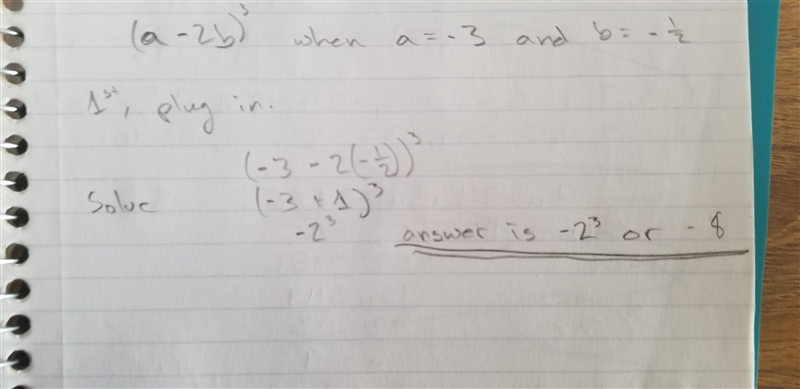 (a - 2b)³ when a = -3 and b = -½
1st, plug in.
(-3 - 2(-½))³
Solve (-3 + 1)³
-2³ answer is -2³ or -8